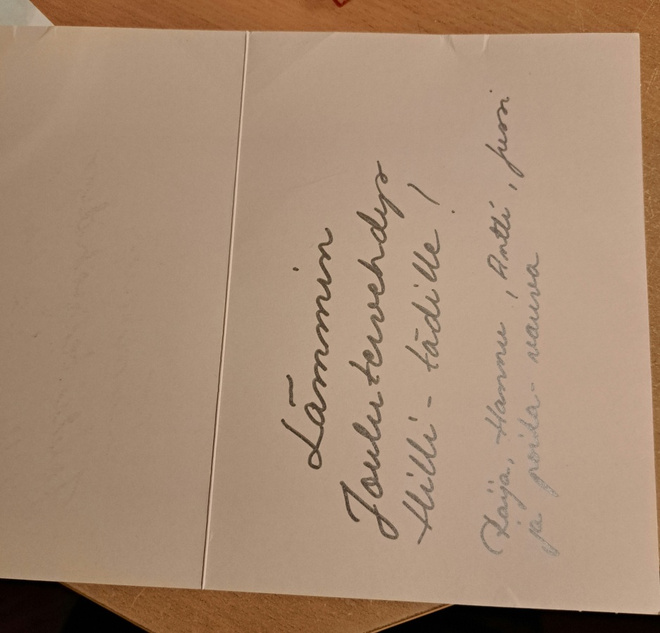 Lämmin
Joulutervehdys
Hilli-tädille!
Raija, Hannu, Antti, Jussi
ja poika-vauva